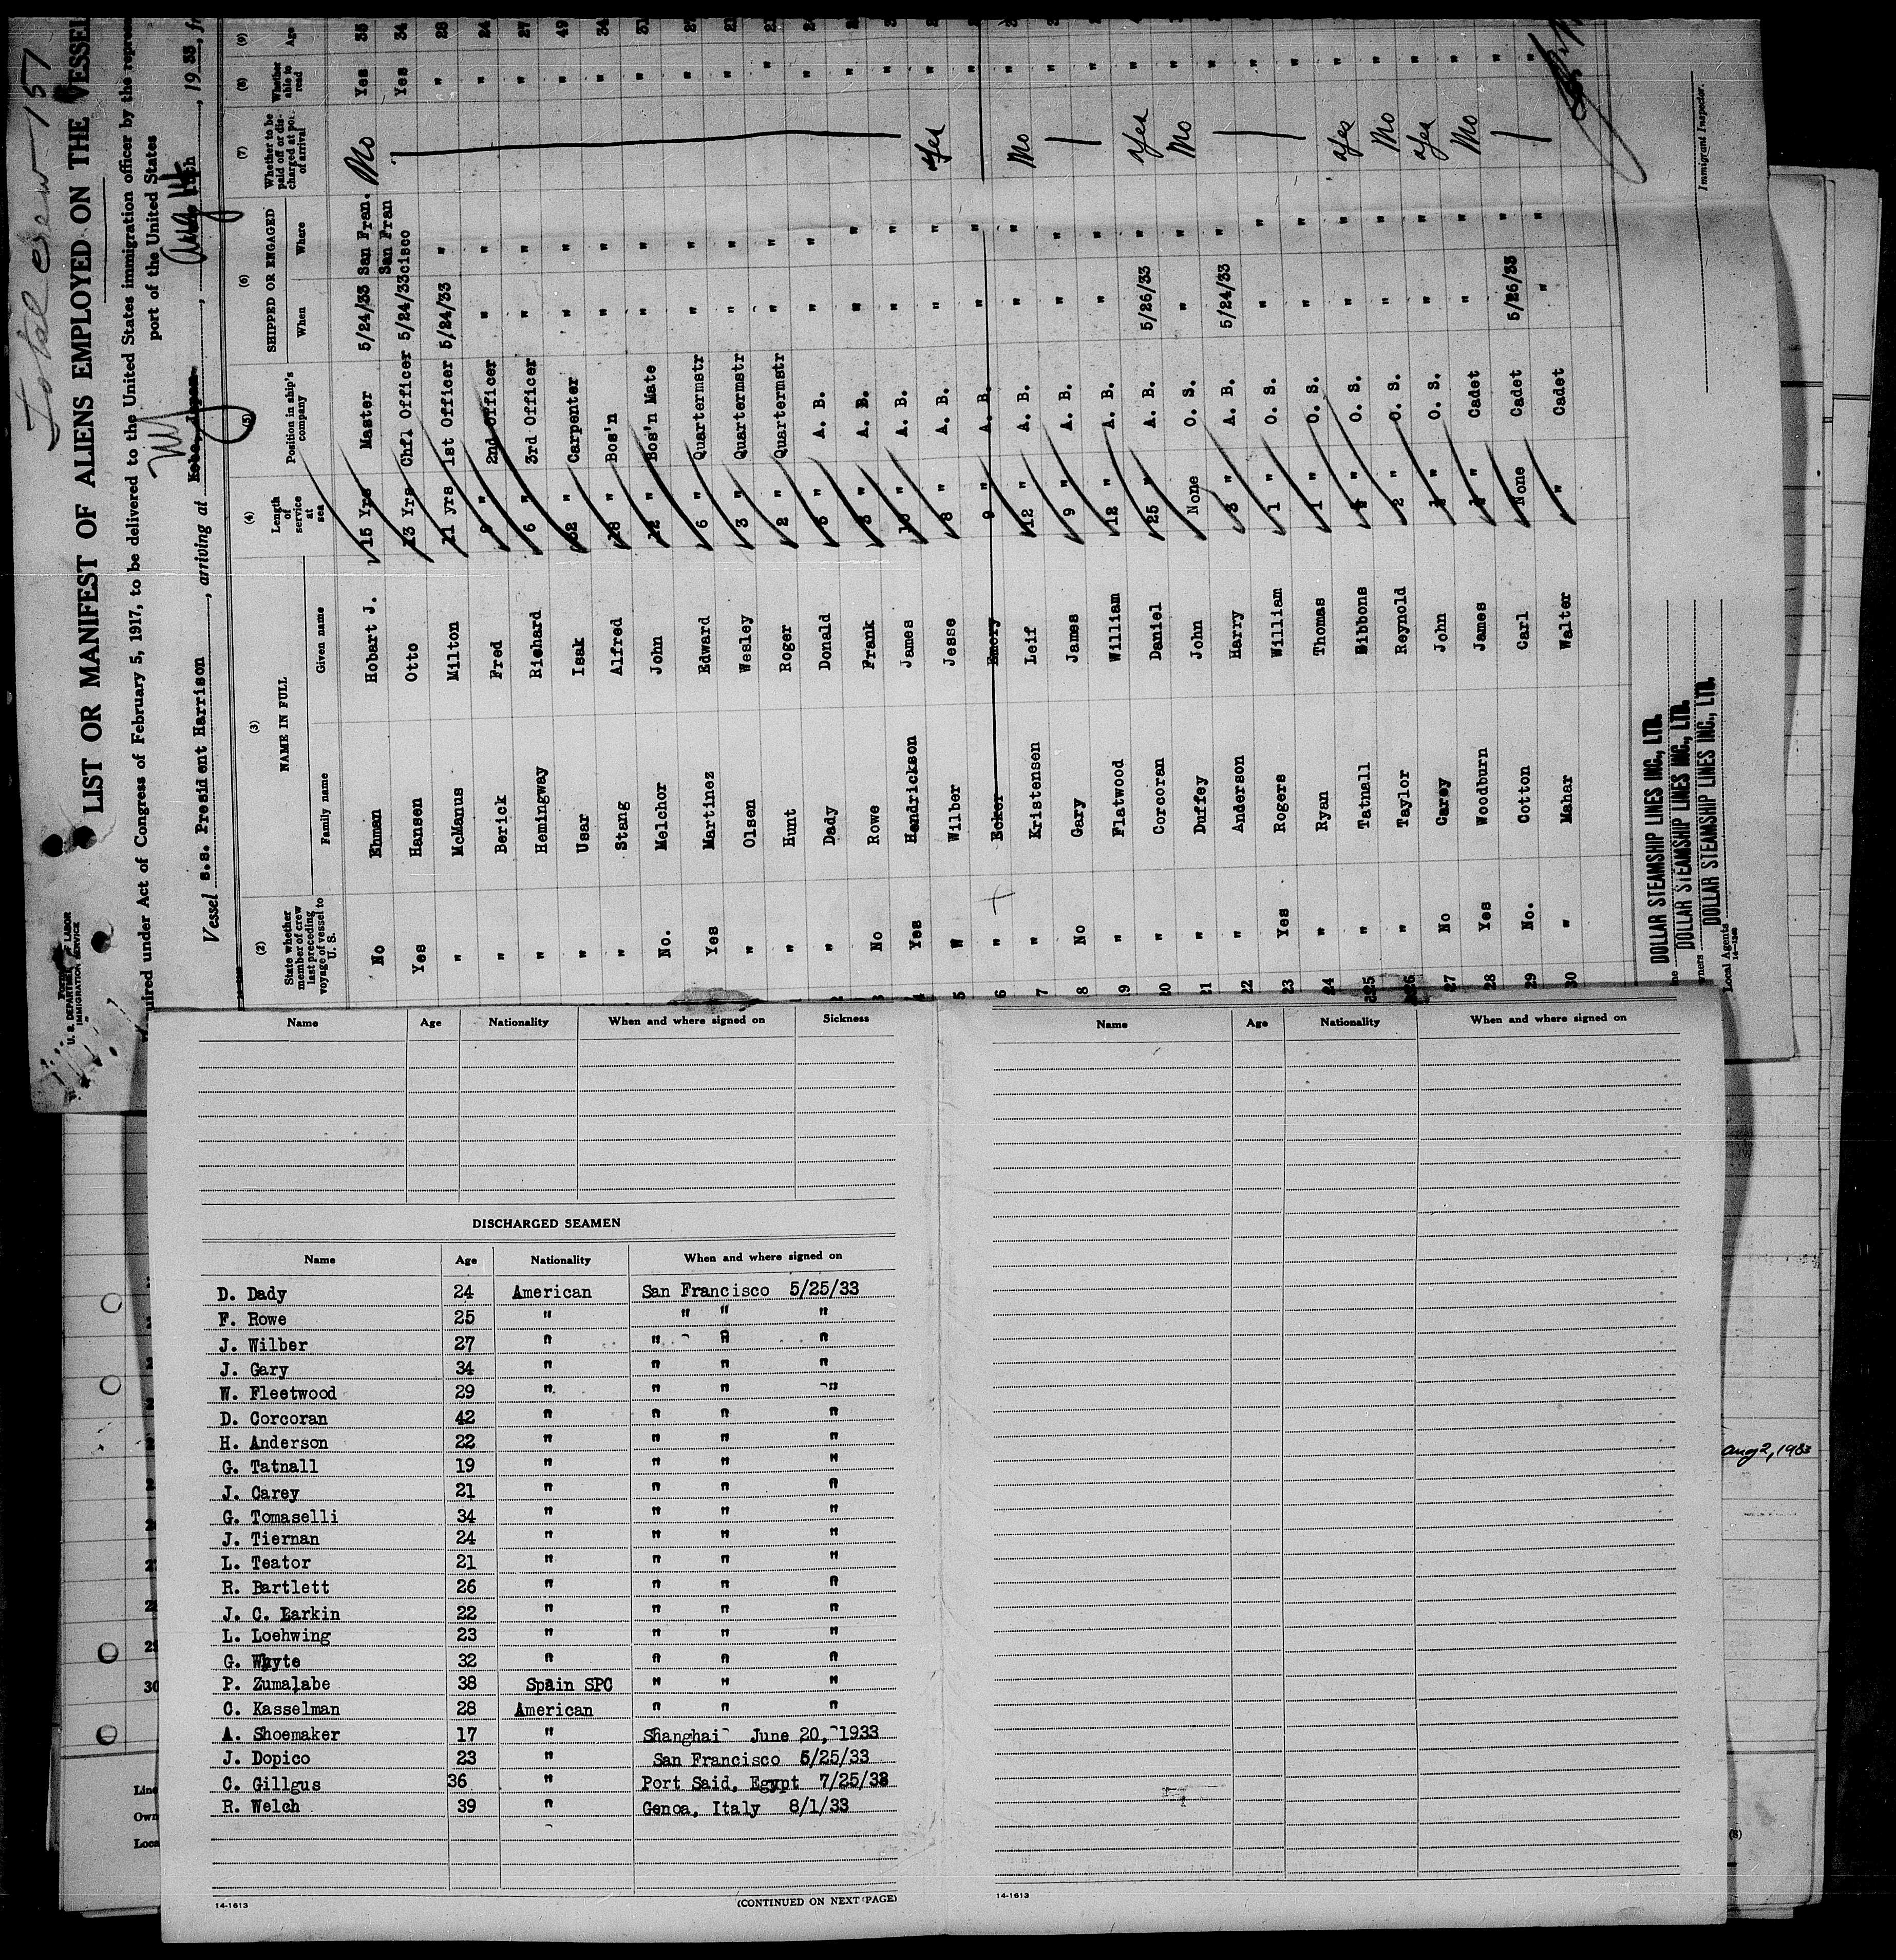 Total crew - 157
LIST OR MANIFEST OF ALIENS EMPLOYED ON THE VESSEL
U. S. DEPARTMENT OF LABOR
IMMIGRATION SERVICE
uired under Act of Congress of February 5, 1917, to be delivered to the United States immigration officer by the repres
port of the United States
Vessel s.s. President Harrison, arriving at Kobe, Japan, 19 33, fr
(2) (3) (4) (5) (6) (7) (8) (9)
State whether member of crew last preceding voyage of vessel to U. S.
NAME IN FULL
Family name Given name
Length of service at sea
Position in ship's company
SHIPPED OR ENGAGED
When Where
Whether to be paid off or discharged at port of arrival
Whether able to read
Age
No Ehman Hobart J. 15 Yrs Master 5/24/33 San Fran. No Yes 35
Yes Hansen Otto 13 Yrs Chfl Officer 5/24/33 San Francisco Yes 34
" McManus Milton 11 yrs 1st Officer 5/24/33 " " 28
" Berick Fred " 2nd Officer " " " 24
" Hemingway Richard 6 " 3rd Officer " " " 27
" Usar Isak " Carpenter " " " 49
" Stang Alfred 18 " Bos'n " " " 34
No. Melchor John 12 " Bos'n Mate " " " 31
Yes Martinez Edward 6 " Quartermstr " " " 27
" Olsen Wesley 3 " Quartermstr " " " 21
" Hunt Roger 2 " Quartermstr " " "
" Dady Donald " A. B. " " "
No Rowe Frank " A. B. " " "
Yes Hendrickson James " A. B. " " "
" Wilber Jesse 8 " A. B. " " Yes "
" Ecker Emory 9 " A. B. " "
" Kristensen Leif 12 " A. B. " " No "
No Gary James 9 " A. B. " " "
" Flatwood William 12 " A. B. " " "
" Corcoran Daniel 25 " A. B. 5/26/33 " Yes "
" Duffey John None O. S. " " No "
" Anderson Harry 3 " A. B. 5/24/33 " "
Yes Rogers William 1 " O. S. " " "
" Ryan Thomas 1 " O. S. " " "
" Tatnall Gibbons " O. S. " " Yes "
" Taylor Reynold 2 " O. S. " " No "
No Carey John " O. S. " " Yes "
Yes Woodburn James " Cadet " " No "
No. Cotton Carl None Cadet 5/26/33 " "
" Mahar Walter " Cadet " " "
DOLLAR STEAMSHIP LINES INC., LTD.
DOLLAR STEAMSHIP LINES INC., LTD.
DOLLAR STEAMSHIP LINES INC., LTD.
Local Agents
Immigrant Inspector.
Name Age Nationality When and where signed on Sickness
DISCHARGED SEAMEN
Name Age Nationality When and where signed on
D. Dady 24 American San Francisco 5/25/33
F. Rowe 25 " " " "
J. Wilber 27 " " " "
J. Gary 34 " " " "
W. Fleetwood 29 " " " "
D. Corcoran 42 " " " "
H. Anderson 22 " " " "
G. Tatnall 19 " " " "
J. Carey 21 " " " "
G. Tomaselli 34 " " " "
J. Tiernan 24 " " " "
L. Teator 21 " " " "
R. Bartlett 26 " " " "
J. C. Larkin 22 " " " "
L. Loehwing 23 " " " "
G. Whyte 32 " " " "
P. Zumalabe 38 Spain SPC " " "
C. Kasselman 28 American " " "
A. Shoemaker 17 " Shanghai June 20, 1933
J. Dopico 23 " San Francisco 5/25/33
C. Gillgus 36 " Port Said, Egypt 7/25/33
R. Welch 39 " Genoa, Italy 8/1/33
14-1613 (CONTINUED ON NEXT PAGE)
Name Age Nationality When and where signed on
14-1613
Aug 2, 1933
30
Line
Own
Loca
(8)